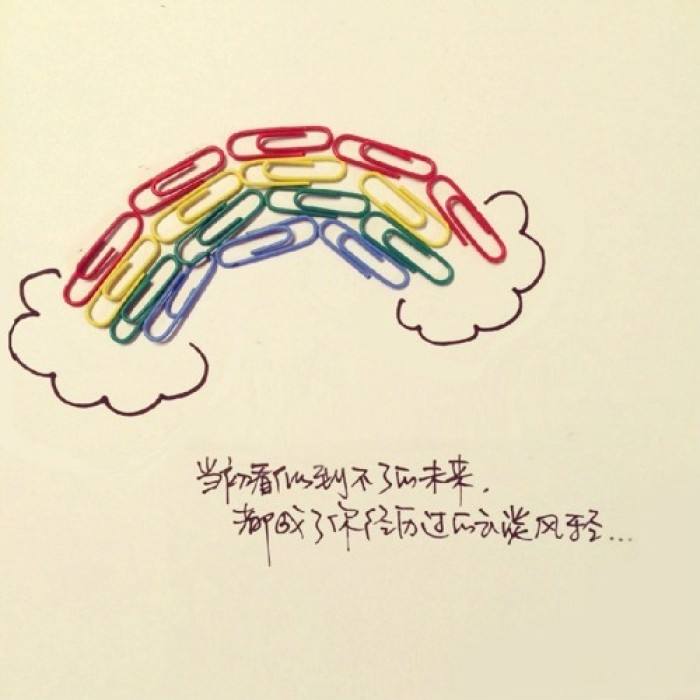 当初看似到不了的未来.
都成了你经历过的云淡风轻...